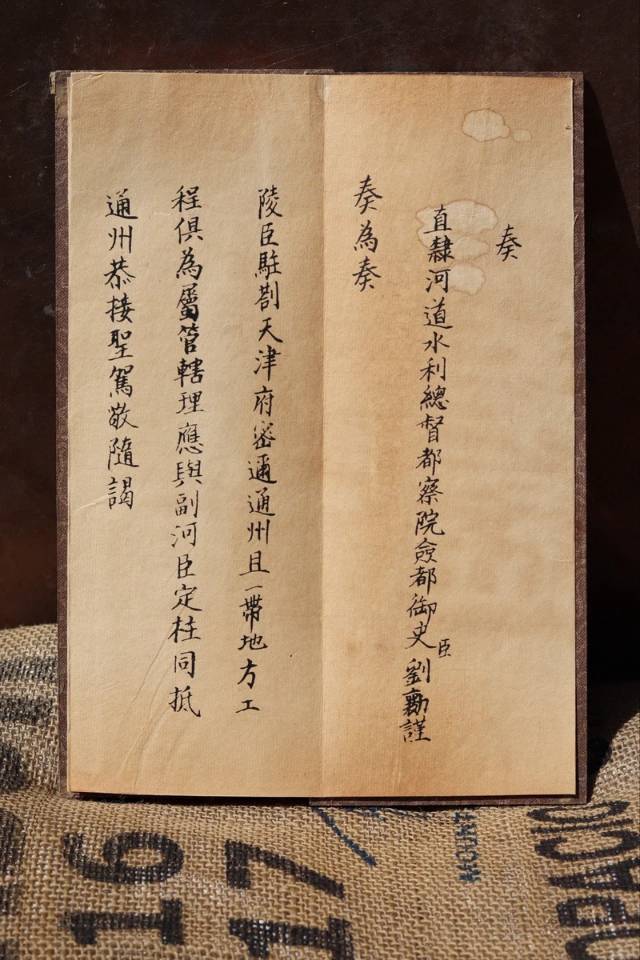 奏
直隸河道水利總督都察院僉都御史臣劉勷謹
奏為奏
陵臣駐劄天津府密邇通州且一帶地方工
程俱為屬管轄理應與副河臣定柱同抵
通州恭接聖駕敬隨謁
16
17
OPACIO